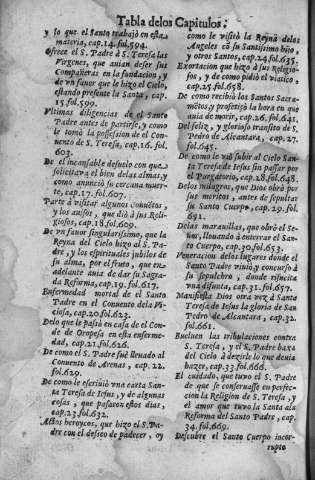 Tabla delos Capitulos:
y lo que el Santo trabajò en esta
materia, cap. 14. fol. 594.
Ofrece el S. Padre à S. Teresa las
Virgenes, que auian de ser sus
Compañeras en la fundacion, y
de vn fauor que le hizo el Cielo,
estando presente la Santa, cap.
15. fol. 599.
Vltimas diligencias de el Santo
Padre antes de partirse, y como
se tomò la possesion de el Conuento
de S. Teresa, cap. 16. fol.
603.
De el incansable desuelo con que
solicitaua el bien de las almas, y
como anunciò su cercana muerte,
cap. 17. fol. 607.
Parte à visitar algunos conuẽtos,
y los auisos, que diò à sus Religiosos,
cap. 18. fol. 609.
De vn fauor singularissimo, que la
Reyna del Cielo hizo al S. Padre,
y los espirituales jubilos de
su alma, por el fruto, que en
adelante auia de dar su Sagrada
Reforma, cap. 19. fol. 617.
Enfermedad mortal de el Santo
Padre en el Conuento de la Viciosa,
cap. 20. fol. 623.
Delo que le passò en casa de el Conde
de Oropesa en esta enfermedad,
cap. 21. fol. 626.
De como el S. Padre fuè lleuado al
Conuento de Arenas, cap. 22.
fol. 629.
De como le escriuiò vna carta Santa
Teresa de Iesus, y de algunas
cosas, que passaron estos dias,
cap. 23. fol. 632.
Actos heroycos, que hizo el S. Padre
con el deseo de padecer, oy
como le visitò la Reyna delos
Angeles cõ su Santissimo hijo,
y otros Santos, cap. 24. fol. 635.
Exortacion que hizo à sus Religiosos,
y de como pidiò el viatico,
cap. 25. fol. 638.
De como recibiò los Santos Sacramẽtos,
y profetizò la hora en que
auia de morir, cap. 26. fol. 641.
Del feliz, y glorioso transito de S.
Pedro de Alcantara, cap. 27.
fol. 645.
De como le viò subir al Cielo Santa
Teresa de Iesus sin passar por
el Purgatorio, cap. 28. fol. 648.
Delos milagros, que Dios obrò por
sus meritos, antes de sepultar
su Santo Cuerpo, cap. 29. fol.
651.
Delas marauillas, que obrò el Señor,
lleuando à enterrar el Santo
Cuerpo, cap. 30. fol. 653.
Veneracion delos lugares donde el
Santo Padre viuiò, y concurso à
su sepulcro, donde resucita
vna difunta, cap. 31. fol. 657.
Manifiesta Dios otra vez à Santa
Teresa de Iesus la gloria de San
Pedro de Alcantara, cap. 32.
fol. 661.
Bueluen las tribulaciones contra
S. Teresa, y el S. Padre baxa
del Cielo à dezirle lo que deuia
hazer, cap. 33. fol. 666.
El cuidado, que tuuo el S. Padre
de que se conseruasse en perfeccion
la Religion de S. Teresa, y
el amor que tuuo la Santa ala
Reforma del Santo Padre, cap.
34. fol. 669.
Descubre el Santo Cuerpo incorrupto